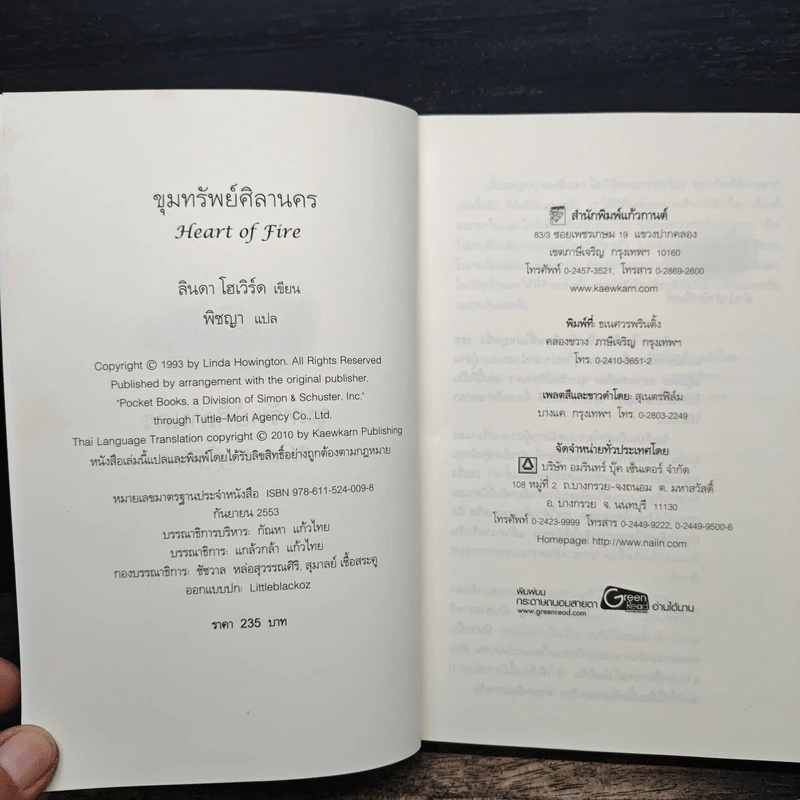 ขุมทรัพย์ศิลานคร
Heart of Fire
ลินดา โฮเวิร์ด เขียน
พิชญา แปล
Copyright © 1993 by Linda Howington. All Rights Reserved
Published by arrangement with the original publisher,
"Pocket Books, a Division of Simon & Schuster, Inc."
through Tuttle-Mori Agency Co., Ltd.
Thai Language Translation copyright © 2010 by Kaewkarn Publishing
หนังสือเล่มนี้แปลและพิมพ์โดยได้รับลิขสิทธิ์อย่างถูกต้องตามกฎหมาย
หมายเลขมาตรฐานประจำหนังสือ ISBN 978-611-524-009-8
กันยายน 2553
บรรณาธิการบริหาร: กัณหา แก้วไทย
บรรณาธิการ: แกล้วกล้า แก้วไทย
กองบรรณาธิการ: ชัชวาล หล่อสุวรรณศิริ, สุมาลย์ เชื้อสระคู
ออกแบบปก: Littleblackoz
ราคา 235 บาท
สำนักพิมพ์แก้วกานต์
83/3 ซอยเพชรเกษม 19 แขวงปากคลอง
เขตภาษีเจริญ กรุงเทพฯ 10160
โทรศัพท์ 0-2457-3521, โทรสาร 0-2869-2600
www.kaewkarn.com
พิมพ์ที่: ธเนศวรพรินติ้ง
คลองขวาง ภาษีเจริญ กรุงเทพฯ
โทร. 0-2410-3651-2
เพลตสีและขาวดำโดย: สุเนตรฟิล์ม
บางแค กรุงเทพฯ โทร. 0-2803-2249
จัดจำหน่ายทั่วประเทศโดย
บริษัท อมรินทร์ บุ๊ค เซ็นเตอร์ จำกัด
108 หมู่ที่ 2 ถ.บางกรวย-จงถนอม ต. มหาสวัสดิ์
อ. บางกรวย จ. นนทบุรี 11130
โทรศัพท์ 0-2423-9999 โทรสาร 0-2449-9222, 0-2449-9500-6
Homepage: http://www.naiin.com
พิมพ์บน
กระดาษถนอมสายตา Green Read อ่านได้นาน
www.greenread.com